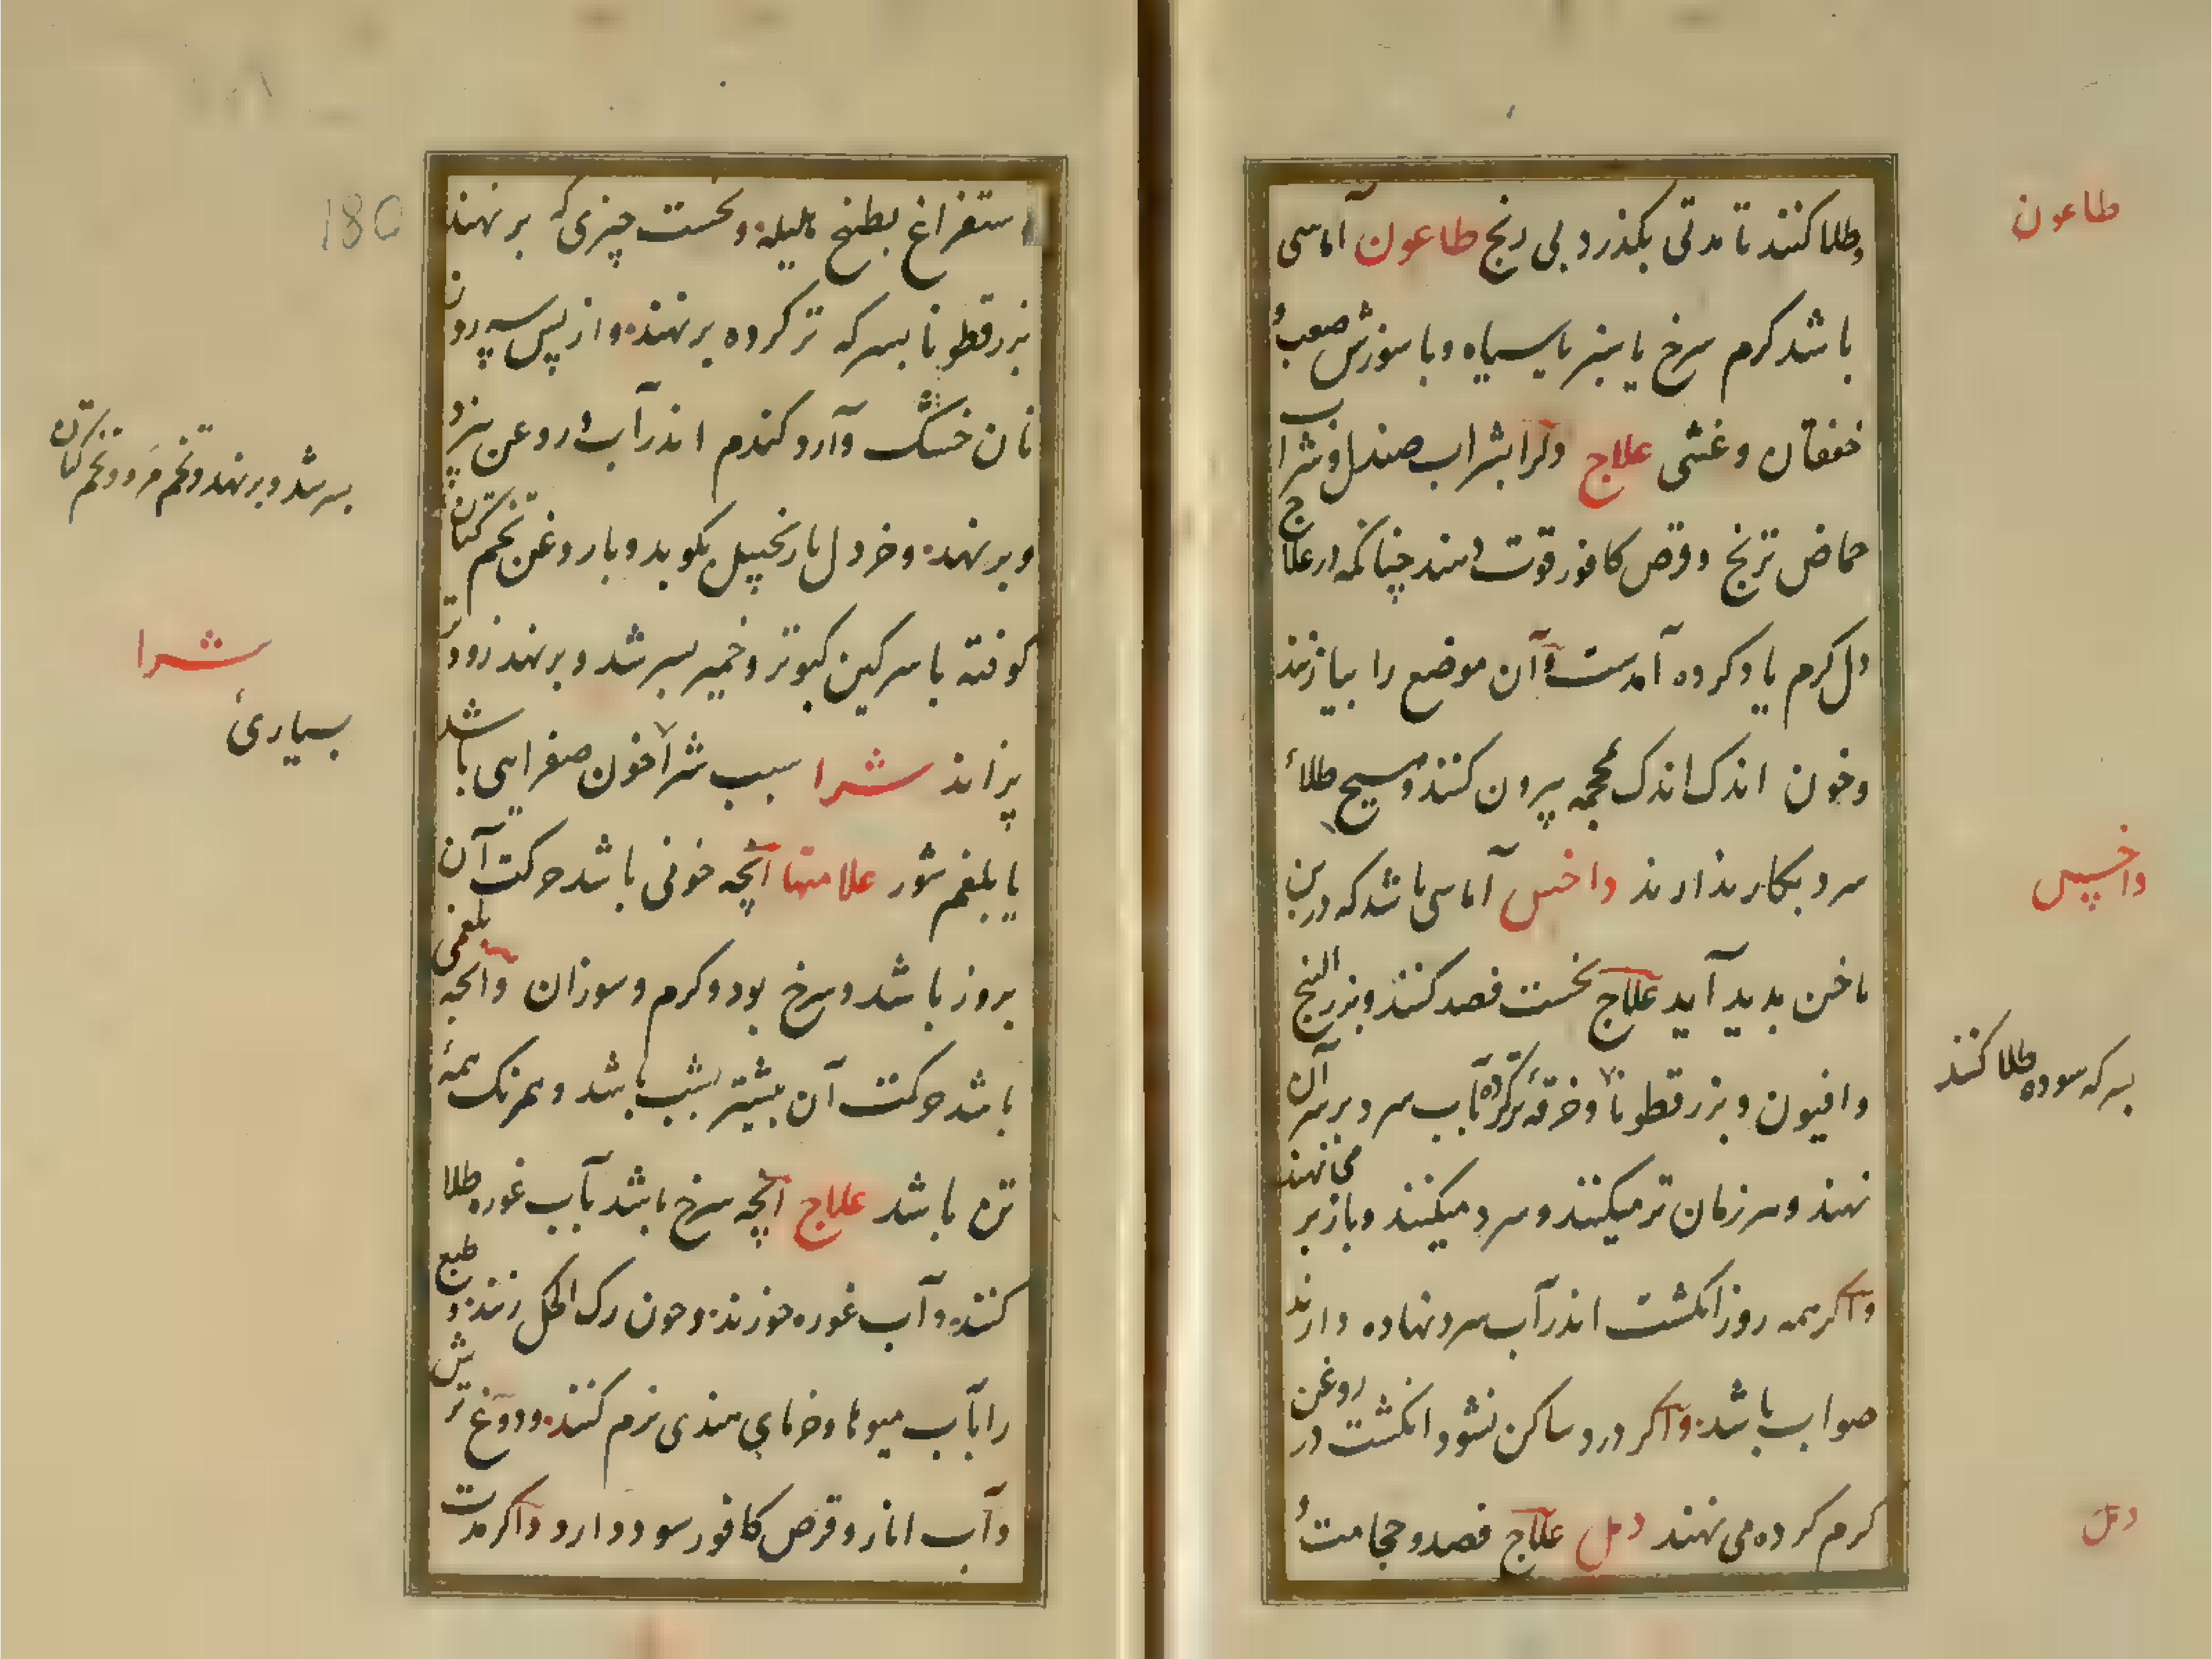 طاعون
وطلا کنند تا مدتی بکذرد بی رنج طاعون آماسی
باشد کرم سرخ یا سبز یا سیاه وبا سوزش صعب و
خفقان وغشی علاج دلرا بشراب صندل وشراب
حماض ترنج وقرص کافور قوت دهند چنانکه در علاج
دل کرم یاد کرده آمدست وآن موضع را بیازنند
وخون اندک اندک بمحجمه بیرون کنند وهیچ طلاء
سرد بکار ندارند داخس آماسی باشد که در بن
داخس
ناخن بدید آید علاج نخست فصد کنند وبزر البنج
وافیون وبزرقطونا وخرقه ترکرده بآب سرد برسر آن
بسرکه سوده طلا کنند
نهند وهر زمان تر میکنند وسرد میکنند وباز بر می نهند
واکر همه روز انکشت اندر آب سرد نهاده دارند
صواب باشد واکر درد ساکن نشود انکشت در روغن
کرم کرده می نهند دمل علاج فصد وحجامت و
دمل
180
استفراغ بطبخ هلیله ونخست چیزی که برنهند
بزرقطونا بسرکه تر کرده برنهند واز پس سه روز
نان خشک وآرد کندم اندر آب وروغن بپزند
بسرشد وبرنهند وتخم مرو وتخم کتان
وبرنهند وخردل با زنجبیل بکوبد وبا روغن تخم کتان
کوفته با سرکین کبوتر وخمیر بسرشد وبرنهند زودتر
شرا
بپزاند شرا سبب شرا خون صفرایی باشد
بسیاریء
یا بلغم شور علامتها آنچه خونی باشد حرکت آن
بروز باشد وسرخ بود وکرم وسوزان وآنچه بلغمی
باشد حرکت آن بیشتر بشب باشد وهمرنک همه
تن باشد علاج آنچه سرخ باشد بآب غوره طلا
کنند وآب غوره خورند وخون رک اکحل زنند وطبع
را بآب میوها وخرمای هندی نرم کنند ودوغ ترش
وآب انار وقرص کافور سود دارد واکر مدت